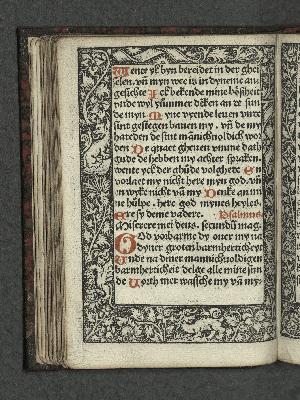 Wente yk byn bereidet in der ghei
selen. vñ myn wee is in dyneme an
gesichte Ick bekende mine boesheit
vnde wyl yummer dēken an ze sun
de myn. Myne vyende leuen vnde
sint gestegen bauen my. vñ de my
hateden de sint mānichuoldich wor
den De quaet gheuen vmme dath
gude de hebben my achter spraken.
wente yck der ghuͤde volghete En
vorlaet my nicht here myn god. vñ
en wyke nicht vā my Dencke an mi
ne huͤlpe. here god mynes heyles.
Ere sy deme vadere. Psalmus
Miserere mei deus. secundū mag.
God vorbarme dy ouer my na
dyner groten barmherticheyt
Unde na dyner mannichuoldigen
barmherticheit delge alle mine sun
de Uorth mer wassche my vā my